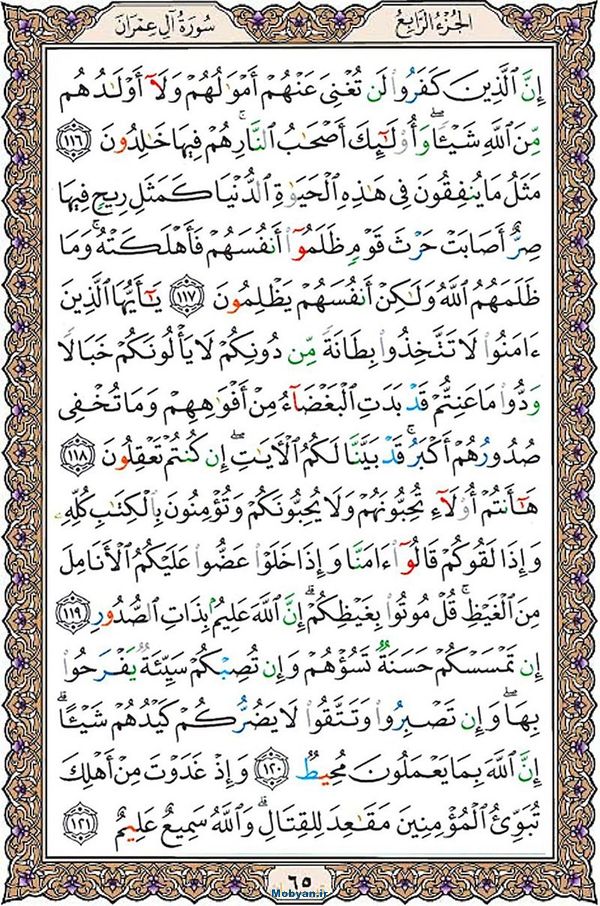 الجُزءُ الرَّابِعُ
سُورَةُ آلِ عِمْرَانَ
إِنَّ ٱلَّذِينَ كَفَرُوا۟ لَن تُغْنِىَ عَنْهُمْ أَمْوَٰلُهُمْ وَلَآ أَوْلَـٰدُهُم
مِّنَ ٱللَّهِ شَيْـًٔا ۖ وَأُو۟لَـٰٓئِكَ أَصْحَـٰبُ ٱلنَّارِ ۚ هُمْ فِيهَا خَـٰلِدُونَ ١١٦
مَثَلُ مَا يُنفِقُونَ فِى هَـٰذِهِ ٱلْحَيَوٰةِ ٱلدُّنْيَا كَمَثَلِ رِيحٍ فِيهَا
صِرٌّ أَصَابَتْ حَرْثَ قَوْمٍ ظَلَمُوٓا۟ أَنفُسَهُمْ فَأَهْلَكَتْهُ ۚ وَمَا
ظَلَمَهُمُ ٱللَّهُ وَلَـٰكِنْ أَنفُسَهُمْ يَظْلِمُونَ ١١٧ يَـٰٓأَيُّهَا ٱلَّذِينَ
ءَامَنُوا۟ لَا تَتَّخِذُوا۟ بِطَانَةً مِّن دُونِكُمْ لَا يَأْلُونَكُمْ خَبَالًا
وَدُّوا۟ مَا عَنِتُّمْ قَدْ بَدَتِ ٱلْبَغْضَآءُ مِنْ أَفْوَٰهِهِمْ وَمَا تُخْفِى
صُدُورُهُمْ أَكْبَرُ ۚ قَدْ بَيَّنَّا لَكُمُ ٱلْـَٔايَـٰتِ ۖ إِن كُنتُمْ تَعْقِلُونَ ١١٨
هَـٰٓأَنتُمْ أُو۟لَآءِ تُحِبُّونَهُمْ وَلَا يُحِبُّونَكُمْ وَتُؤْمِنُونَ بِٱلْكِتَـٰبِ كُلِّهِۦ
وَإِذَا لَقُوكُمْ قَالُوٓا۟ ءَامَنَّا وَإِذَا خَلَوْا۟ عَضُّوا۟ عَلَيْكُمُ ٱلْأَنَامِلَ
مِنَ ٱلْغَيْظِ ۚ قُلْ مُوتُوا۟ بِغَيْظِكُمْ ۗ إِنَّ ٱللَّهَ عَلِيمٌۢ بِذَاتِ ٱلصُّدُورِ ١١٩
إِن تَمْسَسْكُمْ حَسَنَةٌ تَسُؤْهُمْ وَإِن تُصِبْكُمْ سَيِّئَةٌ يَفْرَحُوا۟
بِهَا ۖ وَإِن تَصْبِرُوا۟ وَتَتَّقُوا۟ لَا يَضُرُّكُمْ كَيْدُهُمْ شَيْـًٔا ۗ
إِنَّ ٱللَّهَ بِمَا يَعْمَلُونَ مُحِيطٌ ١٢٠ وَإِذْ غَدَوْتَ مِنْ أَهْلِكَ
تُبَوِّئُ ٱلْمُؤْمِنِينَ مَقَـٰعِدَ لِلْقِتَالِ ۗ وَٱللَّهُ سَمِيعٌ عَلِيمٌ ١٢١
٦٥
Mobyan.ir